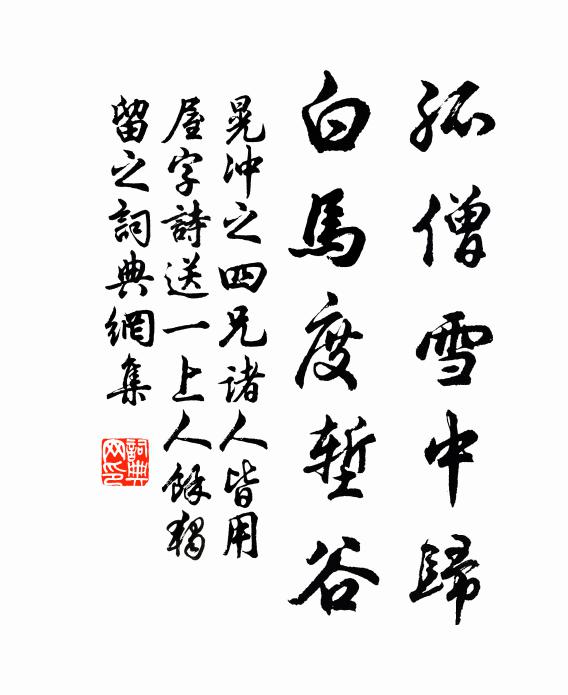 孤僧雪中歸
白馬度塹谷
晁沖之四兄諸人皆用
屋字詩送一上人餘獨
留之詞典網集
詞典網印